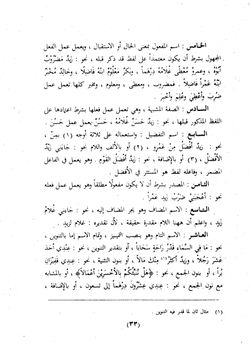 الخامس : اسم المفعول بمعنى الحال أو الاستقبال ، ويعمل عمل الفعل
المجهول بشرط أن يكون معتمداً على لفظ قد ذكر قبله ، نحو : زيدٌ مضروبٌ
أبوهُ ، وعمروٌ معطًى غلامُه درهماً ، وبكرٌ معلومٌ ابنُه فاضلاً ، وخالدٌ مخبرٌ
ابنُه عمراً فاضلاً . فمضروب ، ومعطى ، ومعلوم ، ومخبر كلها تعمل عمل
ضُرِبَ وأُعطِيَ وعُلِمَ وأُخبِرَ .
السادس : الصفة المشبهة ، وهي تعمل عمل فعلها بشرط اعتمادها على
اللفظ المذكور قبلها ، نحو : زيدٌ حَسَنٌ غلامُه ، فحَسَنٌ يعمل عمل حَسُنَ .
السابع : اسم التفضيل ، واستعماله على ثلاثة أوجه (١) بمِنْ ،
نحو : زيدٌ أفضلُ مِنْ عمروٍ ، (٢) أو بالألف واللام ، نحو : جاءني زيدٌ
الأفضلُ ، (٣) أو بالإضافة ، نحو : زيدٌ أفضلُ القومِ . وهو يعمل في الفاعل
المضمر ، وفاعله لفظ هو المستتر في الأفضل .
الثامن : المصدر بشرط أن لا يكون مفعولاً مطلقاً وهو يعمل عمل فعله
نحو : أعجبني ضَرْبُ زيدٌ عمراً .
التاسع : الاسم المضاف وهو يجر المضاف إليه ، نحو : جاءني غلامُ
زيدٍ . واعلم أن ههنا اللام مقدرة حقيقة ، لأن تقديره : غلامٌ لزيدٍ .
العاشر : الاسم التام وهو ينصب التمييز ، وتمام الاسم إما بالتنوين ،
نحو : ما في السماءِ قَدْرُ راحةٍ سَحَاباً ، أو بتقدير التنوين ، نحو : عندي أحدَ
عشرَ رجلاً ، وزيدٌ أكثرُ(١) منك مالاً ، أو بنون التثنية ، نحو : عندي
قفيزانِ بُرًّا ، أو بنون الجمع ، نحو : ﴿هَلْ نُنَبِّئُكُمْ بِالْأَخْسَرِينَ أَعْمَالًا﴾ ، أو بالمشابه
مع نون الجمع ، نحو : عندي عشرونَ درهماً إلى تسعون ، أو بالإضافة ،
(١) مثال ثان لما قدر فيه التنوين
(٣٣)